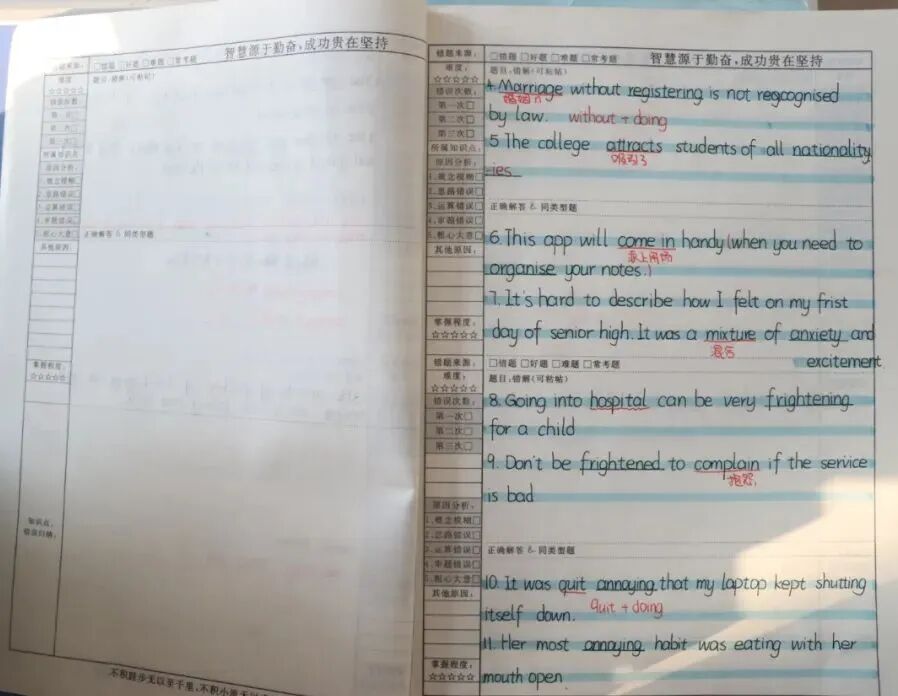 智慧源于勤奋,成功贵在坚持
□错题 □好题 □难题 □常考题
难度
☆☆☆☆☆
题目,错解(可粘贴)
错误次数
所属知识点
原因分析:
1.概念模糊□
2.思路错误□
3.运算错误□
4.审题错误□
5.粗心大意□
其他原因:
正确解答 & 同类型题
掌握程度:
☆☆☆☆☆
知识点、
错误归纳:
错题来源:
□错题 □好题 □难题 □常考题
智慧源于勤奋,成功贵在坚持
难度:
☆☆☆☆☆
错误次数:
第一次□
第二次□
第三次□
所属知识点:
原因分析:
1.概念模糊□
2.思路错误□
3.运算错误□
4.审题错误□
5.粗心大意□
其他原因:
掌握程度:
☆☆☆☆☆
题目,错解(可粘贴)
4. Marriage without registering is not recognised
婚姻 n
by law. without + doing
5 The college attracts students of all nationality
吸引了
-ies
正确解答 & 同类型题
6. This app will come in handy (when you need to
派上用场
organise your notes.)
7. It's hard to describe how I felt on my frist
day of senior high. It was a mixture of anxiety and
混合
excitement
错题来源:
□错题 □好题 □难题 □常考题
难度:
☆☆☆☆☆
错误次数:
第一次□
第二次□
第三次□
原因分析:
1.概念模糊□
2.思路错误□
3.运算错误□
4.审题错误□
5.粗心大意□
其他原因:
掌握程度:
☆☆☆☆☆
题目,错解(可粘贴)
8. Going into hospital can be very frightening
for a child
9. Don't be frightened to complain if the service
抱怨
is bad
正确解答 & 同类型题
10. It was quit annoying that my laptop kept shutting
itself down. quit + doing
11. Her most annoying habit was eating with her
mouth open